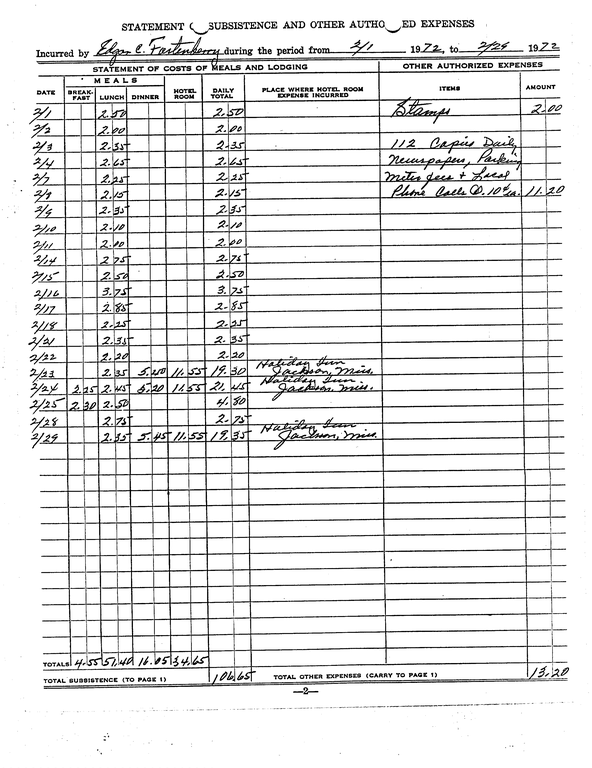 STATEMENT SUBSISTENCE AND OTHER AUTHO ED EXPENSES
Incurred by Edgar C. Fortenberry during the period from 2/1 1972, to 2/29 1972
STATEMENT OF COSTS OF MEALS AND LODGING OTHER AUTHORIZED EXPENSES
DATE MEALS HOTEL ROOM DAILY TOTAL PLACE WHERE HOTEL ROOM EXPENSE INCURRED ITEMS AMOUNT
BREAK-FAST LUNCH DINNER
2/1 2.50 2.50 Stamps 2.00
2/2 2.00 2.00
2/3 2.35 2.35 112 Copies Daily
2/4 2.65 2.65 Newspapers, Parking
2/7 2.25 2.25 meter fees + Local
2/8 2.15 2.15 Phone Calls @ .10¢ ea. 11.20
2/9 2.35 2.35
2/10 2.10 2.10
2/11 2.00 2.00
2/14 2.75 2.75
2/15 2.50 2.50
2/16 3.75 3.75
2/17 2.85 2.85
2/18 2.25 2.25
2/21 2.35 2.35
2/22 2.20 2.20
2/23 2.35 5.40 11.55 19.30 Holiday Inn Jackson, Miss.
2/24 2.25 2.45 5.20 11.55 21.45 Holiday Inn Jackson, Miss.
2/25 2.30 2.50 4.80
2/28 2.75 2.75
2/29 2.35 5.45 11.55 19.35 Holiday Inn Jackson, Miss.
TOTALS 4.55 51.40 16.05 34.65
TOTAL SUBSISTENCE (TO PAGE 1) 106.65 TOTAL OTHER EXPENSES (CARRY TO PAGE 1) 13.20
—2—